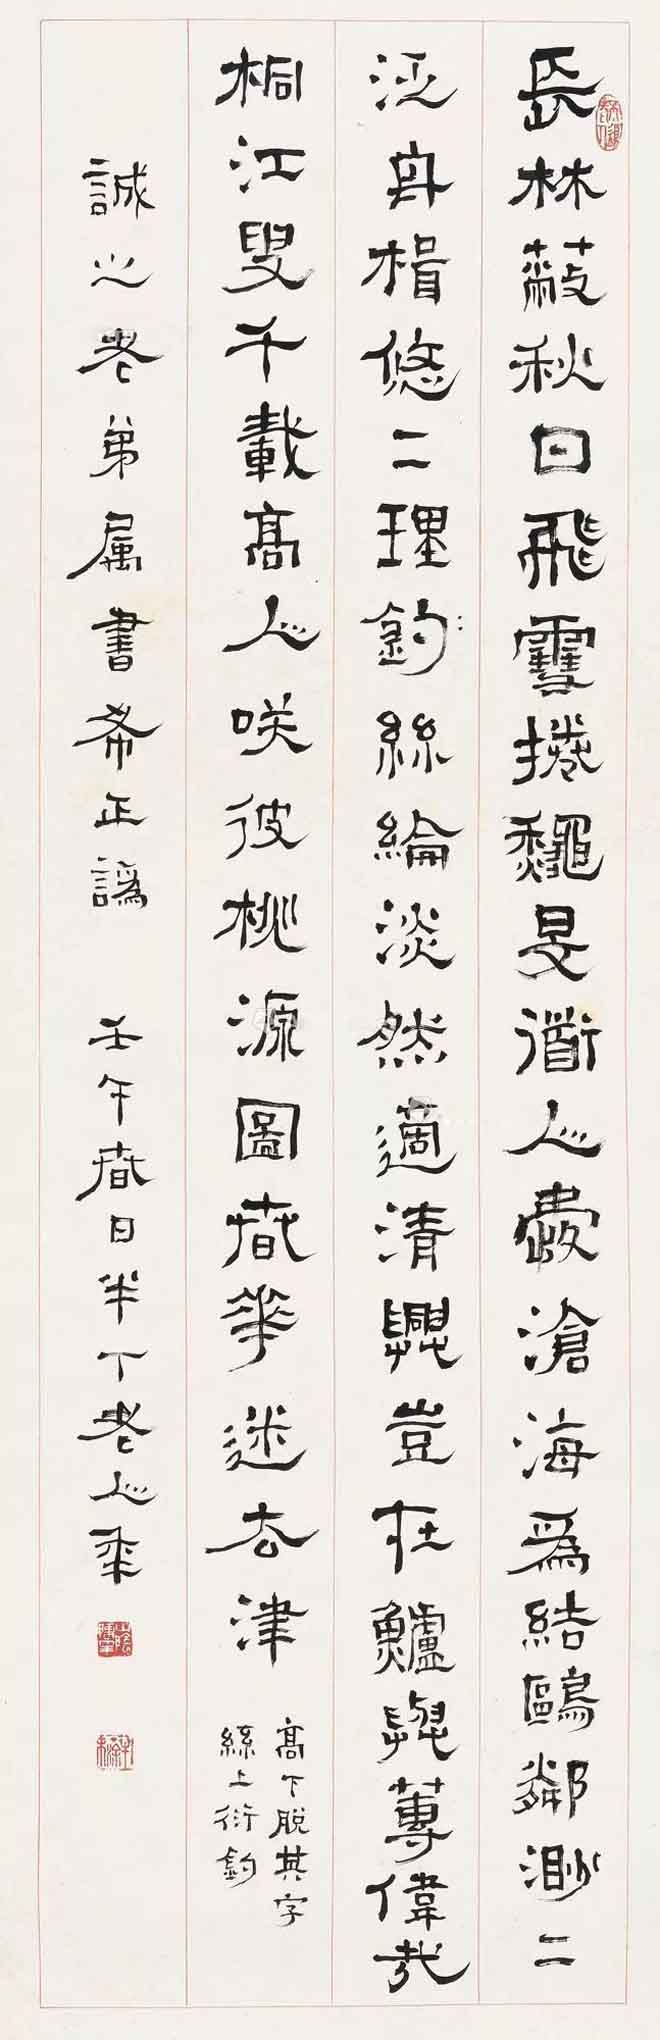 長林蔽秋日飛雪捲龝旻道人愛滄海為結鷗鄰渺二
泛舟楫悠二理釣絲綸淡然適清興豈在鱸與蓴偉哉
桐江叟千載高人咲彼桃源圖春華迷去津
高下脫其字
絲上衍釣
誠之老弟属書希正譌　壬午春日半丁老人年